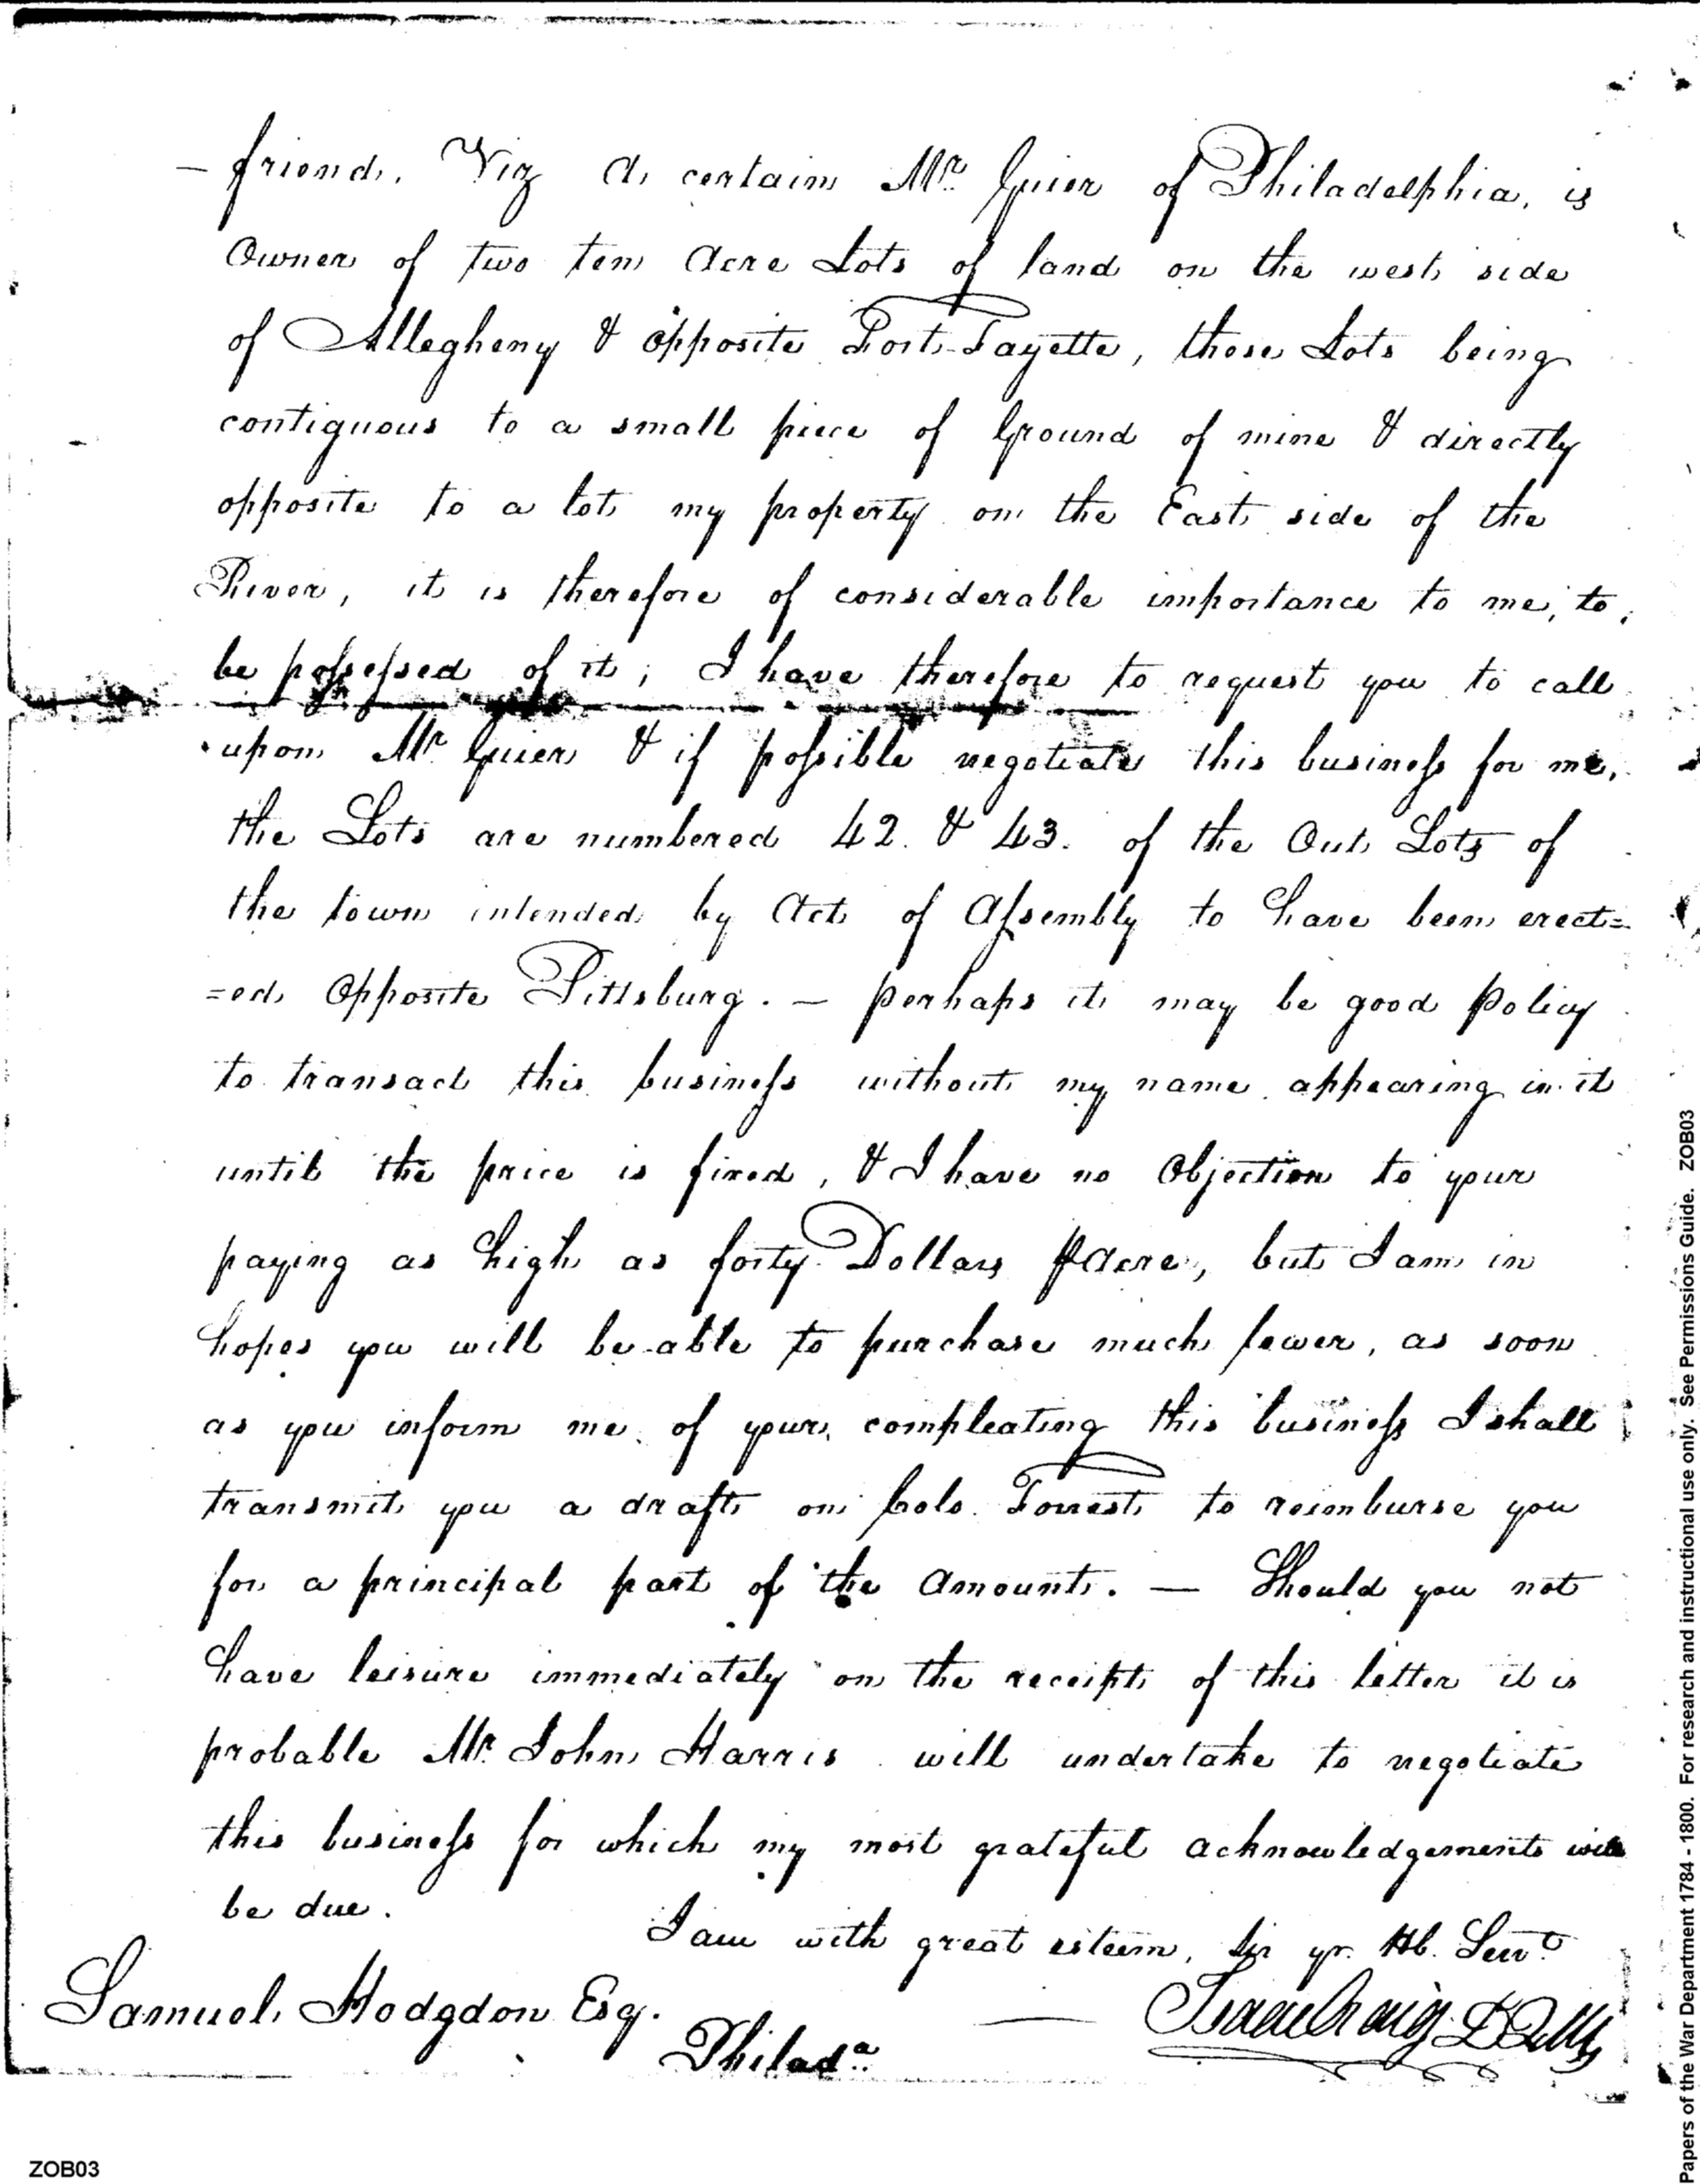 – friend. Viz A certain Mr. Guier of Philadelphia, is
Owner of two ten Acre Lots of land on the west side
of Allegheny & opposite Fort-Fayette, those Lots being
contiguous to a small piece of Ground of mine & directly
opposite to a lot my property on the East side of the
River, it is therefore of considerable importance to me, to
be possessed of it, I have therefore to request you to call
upon Mr Guier & if possible negotiate this business for me,
the Lots are numbered 42. & 43. of the Out Lots of
the town intended by Act of Assembly to have been erect=
=ed Opposite Pittsburg. – perhaps it may be good Policy
to transact this business without my name appearing in it
until the price is fixed, & I have no Objection to your
paying as high as forty Dollars ⅌ Acre, but I am in
hopes you will be able to purchase much lower, as soon
as you inform me of your compleating this business I shall
transmit you a draft on Colo. Forrest to reimburse you
for a principal part of the Amount. — Should you not
have leisure immediately on the receipt of this letter it is
probable Mr. John Harris will undertake to negotiate
this business for which my most grateful acknowledgements will
be due.
I am with great esteem, Sir yr. Hb. Servt
Samuel Hodgdon Esq.
Isaac Craig DQM
Philada
Papers of the War Department 1784 - 1800. For research and instructional use only. See Permissions Guide. ZOB03
ZOB03